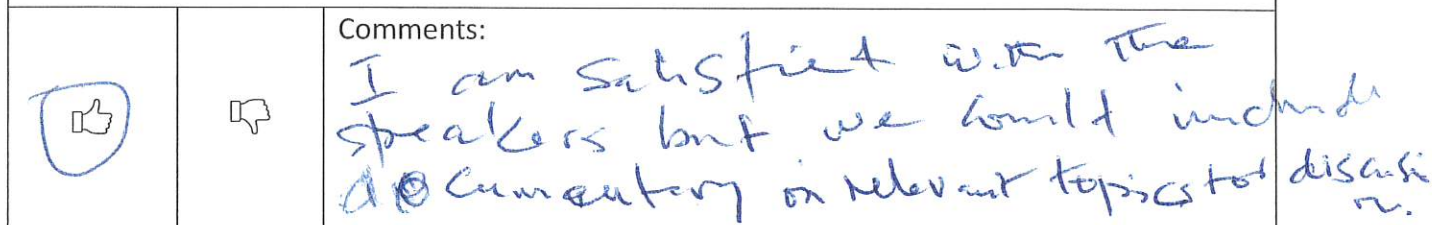 Comments:
I am Satisfied with the
speakers but we could include
documentary on relevant topics for discussi
on.